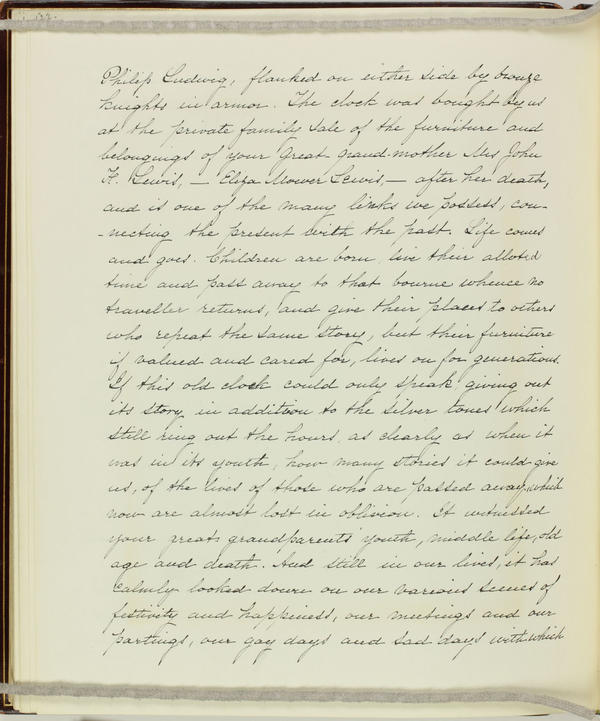 Philip Ludwig, flanked on either side by bronze
knights in armor. The clock was bought by us
at the private family sale of the furniture and
belongings of your Great-grand-mother Mrs John
F. Lewis, — Eliza Mower Lewis, — after her death,
and is one of the many links we possess, con-
-necting the present with the past. Life comes
and goes. Children are born, live their alloted
time and pass away to that bourne whence no
traveller returns, and give their places to others
who repeat the same story, but their furniture
if valued and cared for, lives on for generations.
If this old clock could only speak giving out
its story in addition to the silver tones which
still ring out the hours, as clearly as when it
was in its youth, how many stories it could give
us, of the lives of those who are passed away, which
now are almost lost in oblivion. It witnessed
your great grandparents youth, middle life, old
age and death. And still in our lives, it has
calmly looked down on our various scenes of
festivity and happiness, our meetings and our
partings, our gay days and sad days with which